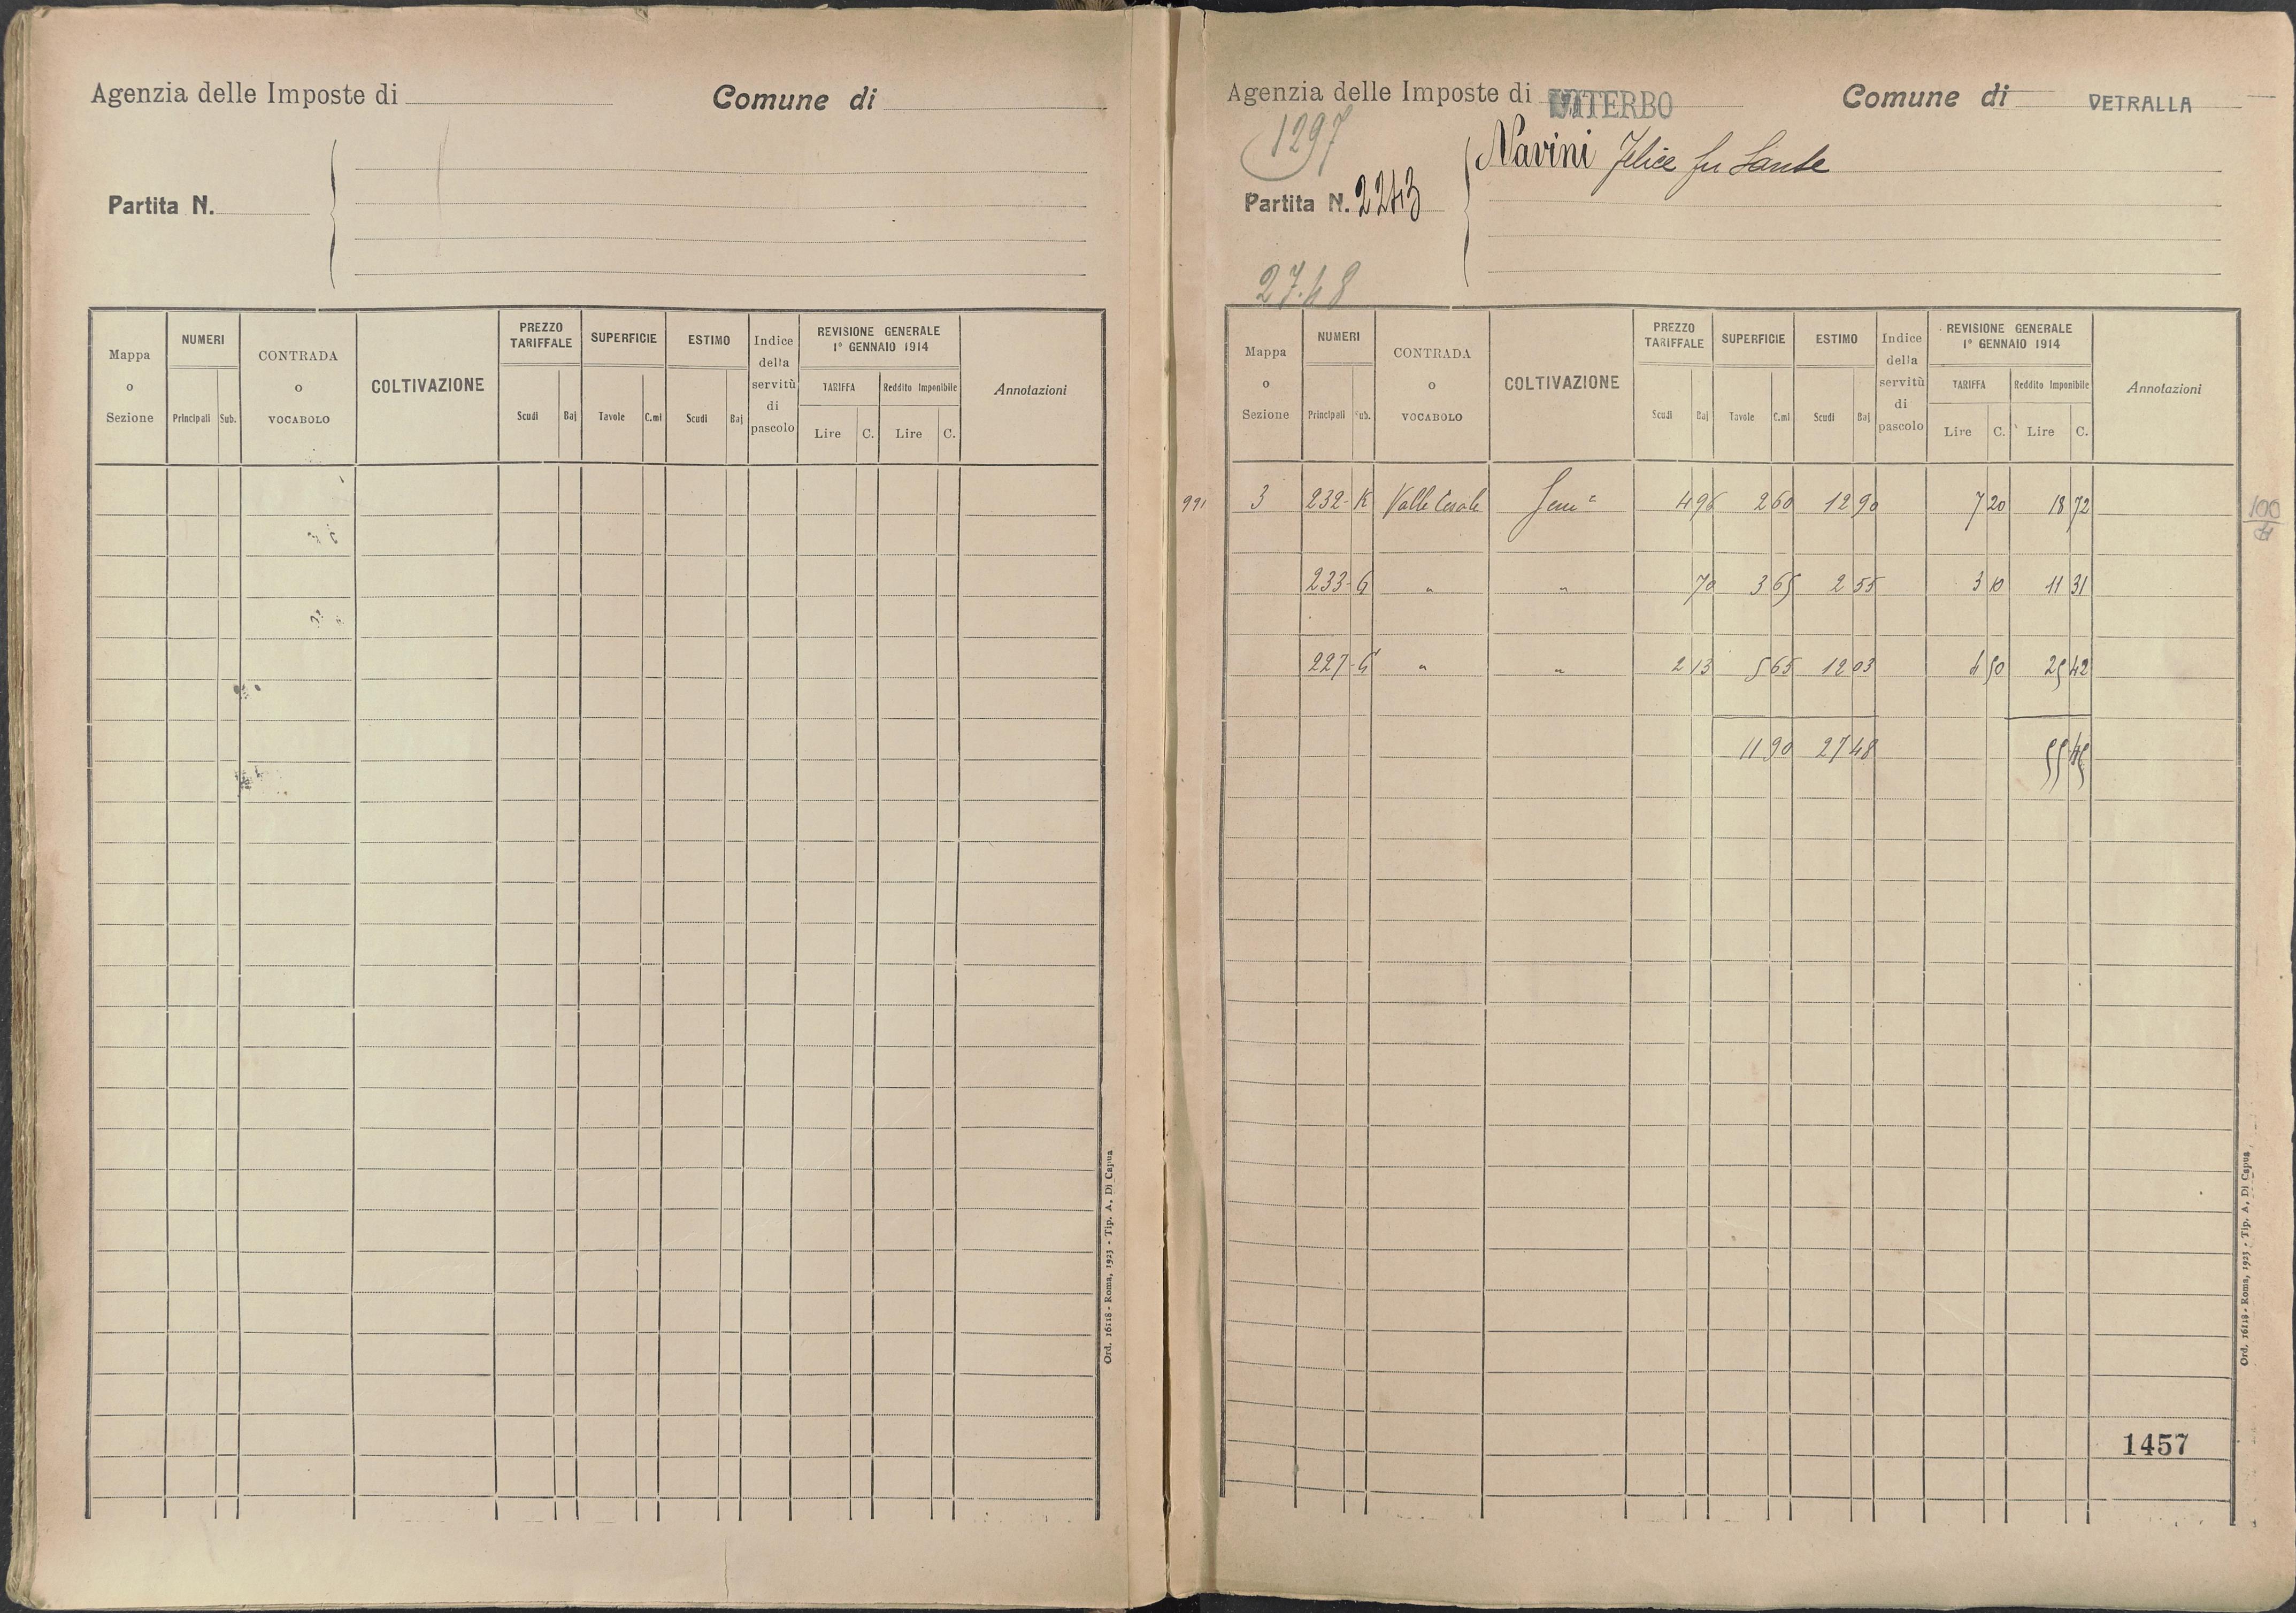 Agenzia delle Imposte di
Comune di
Partita N.
Mappa o Sezione
NUMERI
Principali Sub.
CONTRADA o VOCABOLO
COLTIVAZIONE
PREZZO TARIFFALE
Scudi Baj
SUPERFICIE
Tavole C.mi
ESTIMO
Scudi Baj
Indice della servitù di pascolo
REVISIONE GENERALE 1° GENNAIO 1914
TARIFFA
Lire C.
Reddito Imponibile
Lire C.
Annotazioni
Ord. 16118 - Roma, 1923 - Tip. A. Di Capua
Agenzia delle Imposte di VITERBO
Comune di VETRALLA
1297
Navini Felice fu Sante
Partita N. 2243
27.48
Mappa o Sezione
NUMERI
Principali Sub.
CONTRADA o VOCABOLO
COLTIVAZIONE
PREZZO TARIFFALE
Scudi Baj
SUPERFICIE
Tavole C.mi
ESTIMO
Scudi Baj
Indice della servitù di pascolo
REVISIONE GENERALE 1° GENNAIO 1914
TARIFFA
Lire C.
Reddito Imponibile
Lire C.
Annotazioni
991 3 232 - K Valle Cesale 4 96 2 60 12 90 7 20 18 72
100
233 - G " " 70 3 65 2 55 3 10 11 31
227 - G " " 2 13 5 65 12 03 4 50 25 42
11 90 27 48 55 45
1457
Ord. 16118 - Roma, 1923 - Tip. A. Di Capua